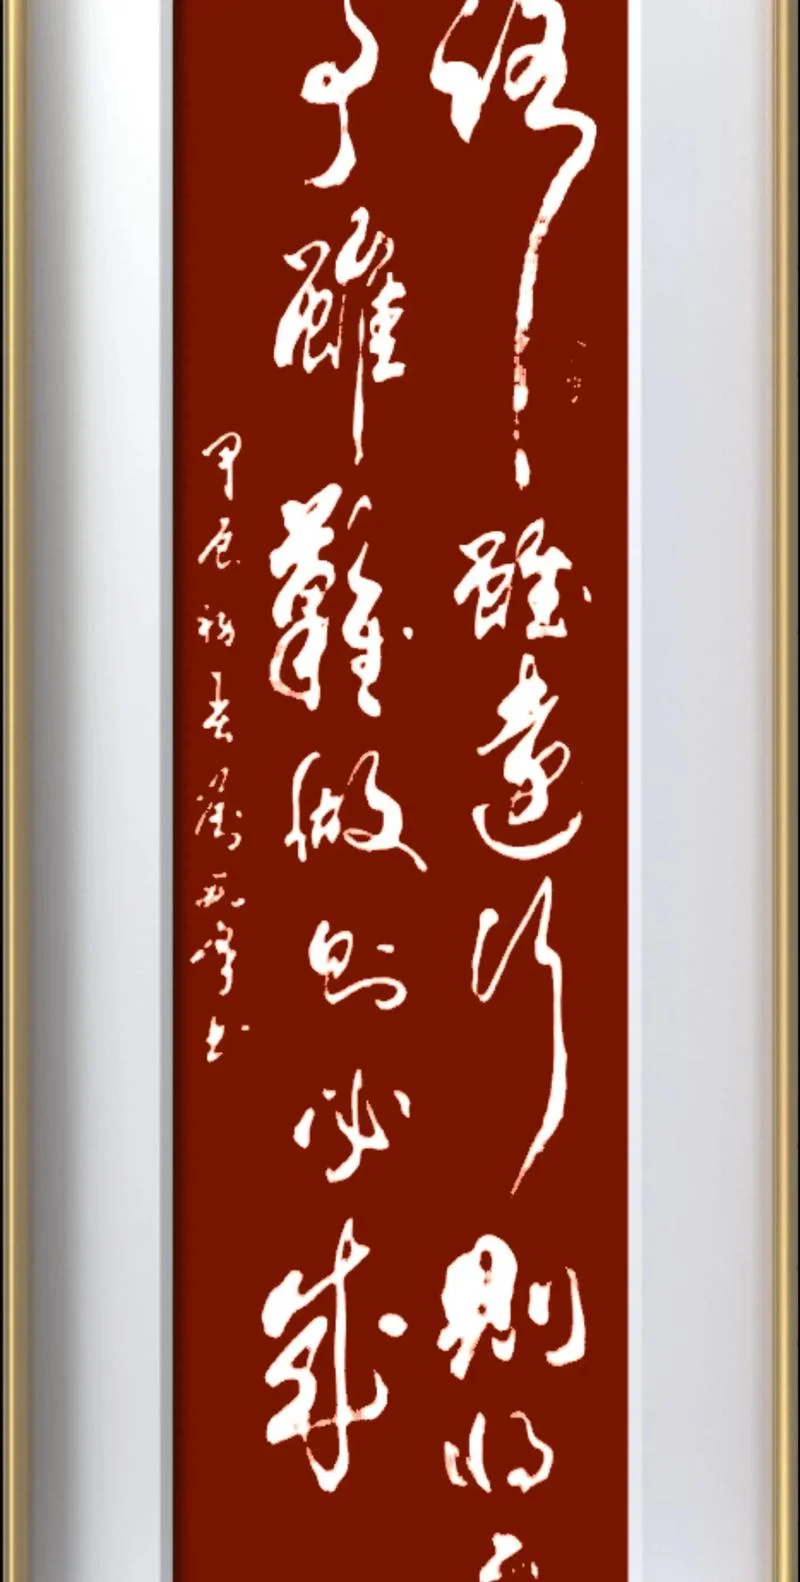 路雖遠行則將
事雖難做則必成
甲辰春劉書